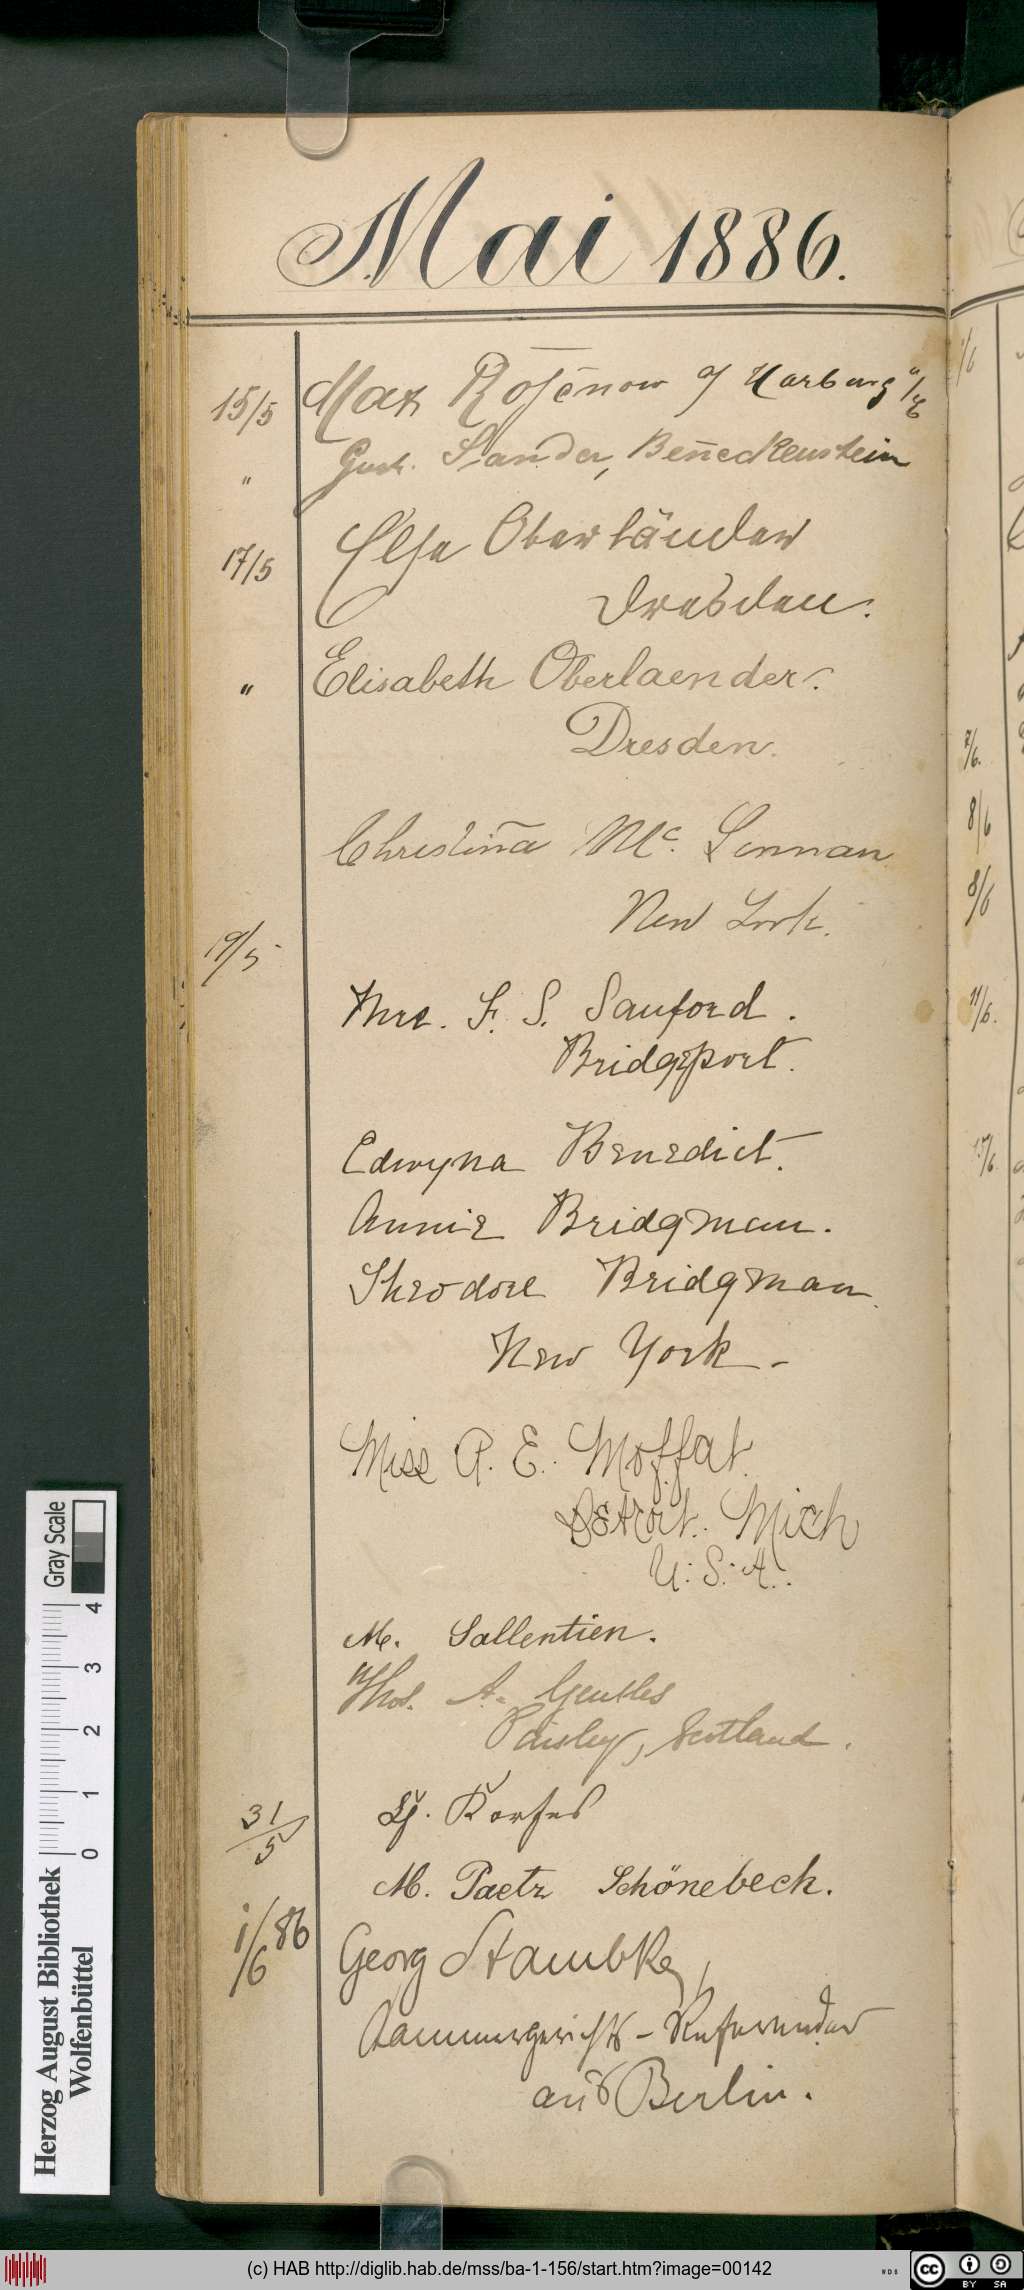 Mai 1886.
15/5 Max Rosenow Harburg a/E
" Gust. Sander, Benneckenstein
17/5 Else Oberländer
Dresden.
" Elisabeth Oberlaender.
Dresden.
Christina Mc. Lennan
New York.
19/5
Mrs. F. S. Sanford.
Bridgeport.
Edwyna Benedict.
Annie Bridgman.
Theodore Bridgman
New York -
Miss A. E. Moffat.
Detroit. Mich
U. S. A.
M. Sallentien.
Thos. A. Gentles
Paisley, Scotland.
31/5 Korfes
M. Paetz Schönebeck.
1/6 86 Georg Stambke,
Kammergerichts-Referendar
aus Berlin.
1/6
7/6.
8/6
8/6
11/6.
Gray Scale
0 1 2 3 4
Herzog August Bibliothek
Wolfenbüttel
(c) HAB http://diglib.hab.de/mss/ba-1-156/start.htm?image=00142
cc BY SA